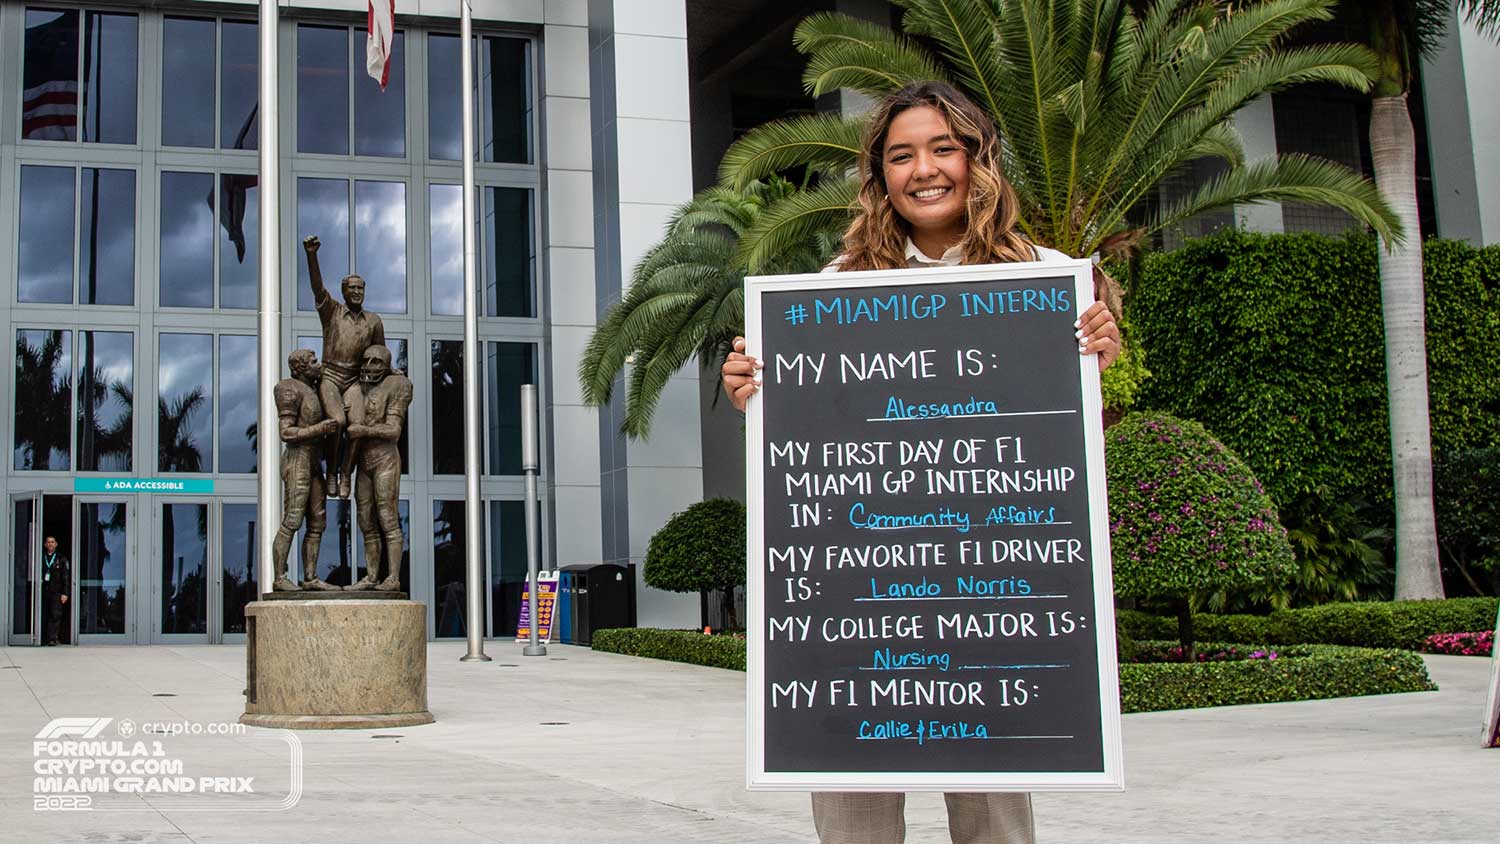 # MIAMIGP INTERNS
MY NAME IS:
Alessandra
MY FIRST DAY OF F1
MIAMI GP INTERNSHIP
IN: Community Affairs
MY FAVORITE F1 DRIVER
IS: Lando Norris
MY COLLEGE MAJOR IS:
Nursing
MY F1 MENTOR IS:
Callie & Erika
ADA ACCESSIBLE
crypto.com
FORMULA 1
CRYPTO.COM
MIAMI GRAND PRIX
2022